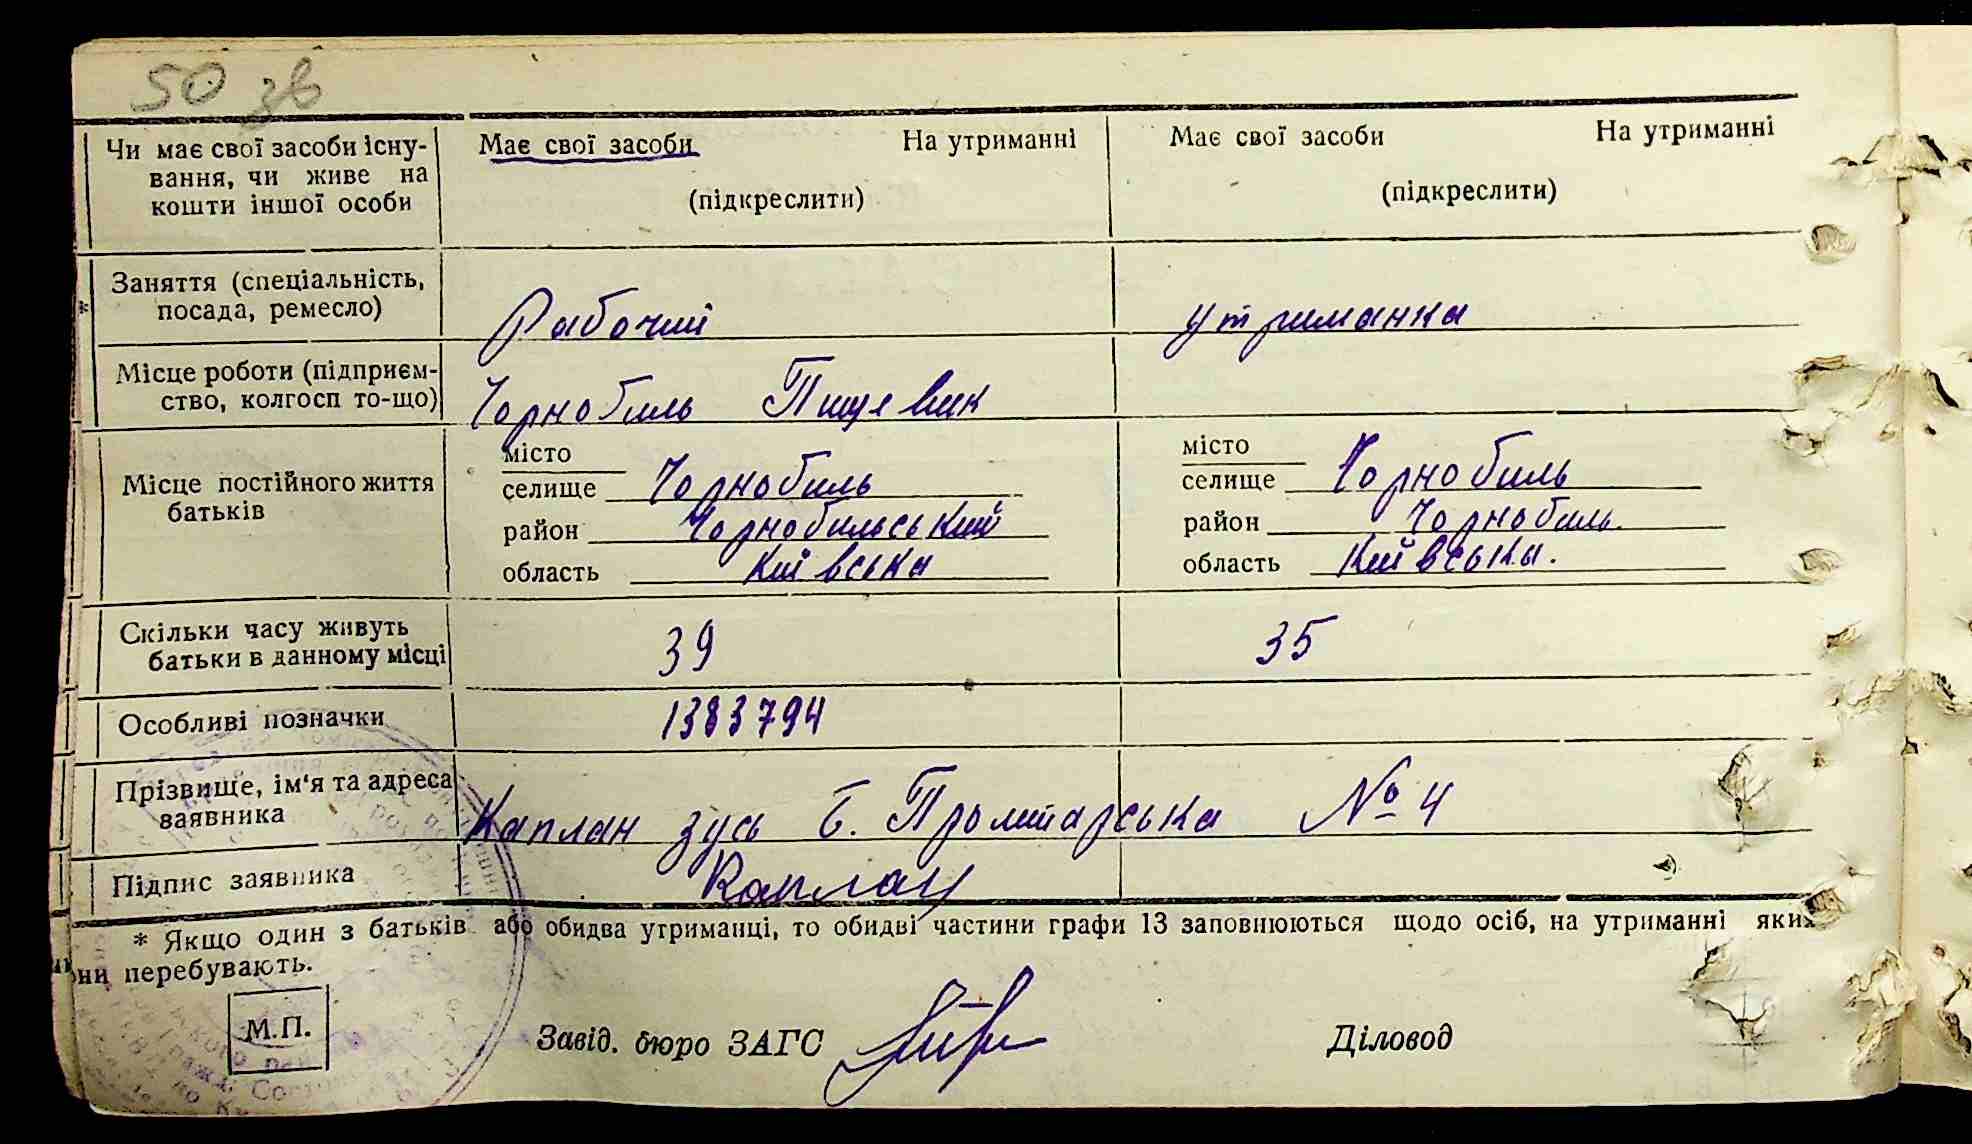 50 зв
Чи має свої засоби існу-
вання, чи живе на
кошти іншої особи
Має свої засоби На утриманні
(підкреслити)
Має свої засоби На утриманні
(підкреслити)
* Заняття (спеціальність,
посада, ремесло)
Рабочий
утриманка
Місце роботи (підприєм-
ство, колгосп то-що)
Чорнобиль Пищевик
Місце постійного життя
батьків
місто
селище Чорнобиль
район Чорнобильський
область Київська
місто
селище Чорнобиль
район Чорнобиль
область Київська.
Скільки часу живуть
батьки в данному місці
39
35
Особливі позначки
1383794
Прізвище, ім'я та адреса
заявника
Каплан зусь Б. Пролитарська № 4
Підпис заявника
Каплан
* Якщо один з батьків або обидва утриманці, то обидві частини графи 13 заповнюються щодо осіб, на утриманні яких
вони перебувають.
М.П.
Завід. бюро ЗАГС
Діловод